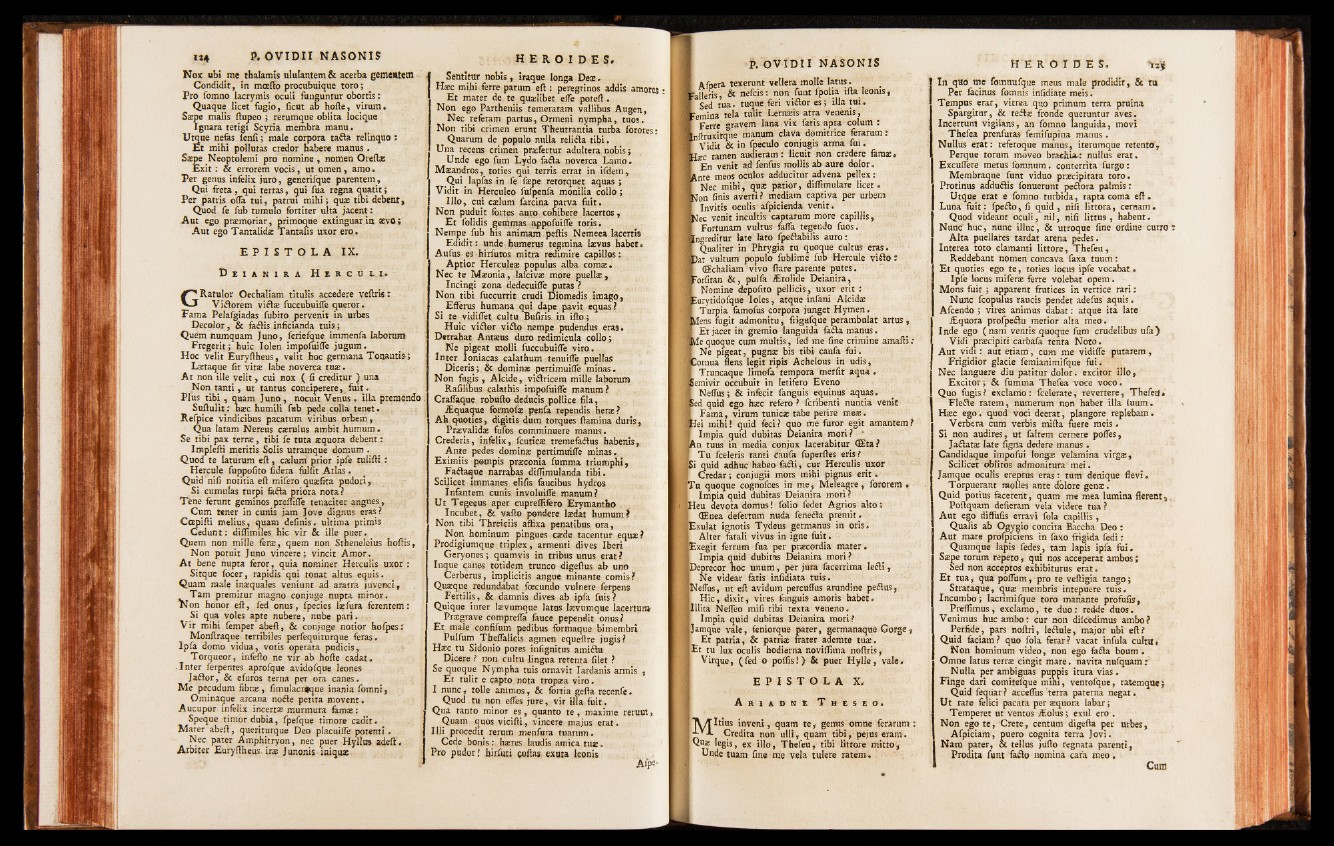 124 P. OVIDII NASONIS
Nox ubi me thalamis ululantem & acerba gementem
Condidit, in mœsto procubuique toro;
Pro somno lacrymis oculi funguntur obortis:
Quaque licet fugio, sicut ab hoste, virum.
Sæpe malis stupeo; rerumque oblita locique
Ignara tetigi Scyria membra manu.
Utque nefas sensi; male corpora tacta relinquo:
Et mihi pollutas credor habere manus.
Sæpe Neoptolemi pro nomine, nomen Orestæ
Exit: & errorem vocis, ut omen, amo.
Per genus infelix juro, generisque parentem,
Qui freta, qui terras, qui sua regna quatit;
Per patris ossa tui, patrui mihi; quæ tibi debent,
Quod se sub tumulo fortiter ulta jacent:
Aut ego præmoriar, primoque extinguar in ævo;
Aut ego Tantalidæ Tantalis uxor ero.
EPISTOLA IX.
DEIANIRA HERCULI.
GRatulor Oechaliam titulis accedere vestris:
Victorem victæ succubuisse queror.
Fama Pelasgiadas subito pervenit in urbes
Decolor, & factis inficianda tuis;
Quem numquam Juno, seriesque immensa laborum
Fregerit; huic Iolen imposuisse jugum.
Hoc velit Eurystheus, velit hoc germana Tonantis;
Lætaque sit vitæ labe noverca tuæ.
At non ille velit, cui nox ( si creditur ) una
Non tanti, ut tantus conciperere, fuit.
Plus tibi, quam Juno, nocuit Venus. illa premendo
Sustulit: hæc humili sub pede colla tenet.
Respice vindicibus pacatum viribus orbem,
Qua latam Nereus cærulus ambit humum.
Se tibi pax terræ, tibi se tuta æquora debent:
Implesti meritis Solis utramque domum.
Quod te laturum est, cælum prior ipse tulisti:
Hercule supposito sidera fulsit Atlas.
Quid nisi notitia est misero quæsita pudori,
Si cumulas turpi facta priora nota?
Tene ferunt geminos pressisse tenaciter angues,
Cum tener in cunis jam Jove dignus eras?
Cœpisti melius, quam desinis. ultima primis
Cedunt: dissimiles hic vir & ille puer.
Quem non mille feræ, quem non Stheneleius hostis,
Non potuit Juno vincere; vincit Amor.
At bene nupta feror, quia nominer Herculis uxor:
Sitque socer, rapidis qui tonat altus equis.
Quam male inæquales veniunt ad aratra juvenci,
Tam premitur magno conjuge nupta minor.
Non honor est, sed onus, species læsura ferentem:
Si qua voles apte nubere, nube pari.
Vir mihi semper abest, & conjuge notior hospes:
Monstraque terribiles persequiturque feras.
Ipsa domo vidua, votis operata pudicis,
Torqueor, infesto ne vir ab hoste cadat.
Inter serpentes aprosque avidosque leones
Jactor, & esuros terna per ora canes.
Me pecudum fibræ, simulacraque inania somni,
Ominaque arcana nocte petita movent.
Aucupor infelix incertæ murmura famæ:
Speque timor dubia, spesque timore cadit.
Mater abest, queriturque Deo placuisse potenti.
Nec pater Amphitryon, nec puer Hyllus adest.
Arbiter Eurystheus iræ Junonis iniquæ
HEROIDES.
Sentitur nobis, iraque longa Deæ.
Hæc mihi ferre parum est: peregrinos addis amores:
Et mater de te quælibet esse potest.
Non ego Partheniis temeratam vallibus Augen,
Nec referam partus, Ormeni nympha, tuos.
Non tibi crimen erunt Theutrantia turba sorores:
Quarum de populo nulla relicta tibi.
Una recens crimen præfertur adultera nobis;
Unde ego sum Lydo facta noverca Lamo.
Mæandros, toties qui terris errat in iisdem,
Qui lapsas in se sæpe retorquet aquas;
Vidit in Herculeo suspensa monilia collo;
Illo, cui cælum sarcina parva fuit.
Non puduit fortes auro cohibere lacertos,
Et solidis gemmas apposuisse toris.
Nempe sub his animam pestis Nemeea lacertis
Edidit: unde humerus tegmina lævus habet.
Ausus es hirsutos mitra redimire capillos:
Aptior Herculeæ populus alba comæ.
Nec te Mæonia, lascivæ more puellæ,
Incingi zona dedecuisse putas?
Non tibi succurrit crudi Diomedis imago,
Efferus humana qui dape pavit equas?
Si te vidisset cultu Busiris in isto;
Huic victor victo nempe pudendus eras.
Detrahat Antæus duro redimicula collo;
Ne pigeat molli succubuisse viro.
Inter Ioniacas calathum tenuisse puellas
Diceris; & dominæ pertimuisse minas.
Non fugis, Alcide, victricem mille laborum
Rasilibus calathis imposuisse manum?
Crassaque robusto deducis pollice fila,
Æquaque formosæ pensa rependis heræ?
Ah quoties, digitis dum torques stamina duris,
Prævalidæ fusos comminuere manus.
Crederis, infelix, scuticæ tremefactus habenis,
Ante pedes dominæ pertimuisse minas.
Eximiis pompis præconia summa triumphi,
Factaque narrabas dissimulanda tibi.
Scilicet immanes elisis faucibus hydros
Infantem cunis involuisse manum?
Ut Tegeæus aper cupressifero Erymantho
Incubet, & vasto pondere lædat humum?
Non tibi Threiciis affixa penatibus ora,
Non hominum pingues cæde tacentur equæ?
Prodigiumque triplex, armenti dives Iberi
Geryones; quamvis in tribus unus erat?
Inque canes totidem trunco digestus ab uno
Cerberus, implicitis angue minante comis?
Quæque redundabat fœcundo vulnere serpens
Fertilis, & damnis dives ab ipsa suis?
Quique inter lævumque latus lævumque lacertum
Prægrave compressa fauce pependit onus?
Et male confisum pedibus formaque bimembri
Pulsum Thessalicis agmen equestre jugis?
Hæc tu Sidonio pores insignitus amictu
Dicere? non cultu lingua retenta silet?
Se quoque Nympha tuis ornavit Jardanis armis,
Et tulit e capto nota tropæa viro.
I nunc, tolle animos, & fortia gesta recense.
Quod tu non esses jure, vir illa fuit.
Qua tanto minor es, quanto te, maxime rerum,
Quam quos vicisti, vincere majus erat.
Illi procedit rerum mensura tuarum.
Cede bonis: hæres laudis amica tuæ.
Pro pudor! hirsuti costas exuta leonis
Aspe-
P. OVIDII NASONIS
Aspera texerunt vellera molle latus.
Falleris, & nescis: non sunt spolia ista leonis,
Sed tua. tuque feri victor es; illa tui.
Femina tela tulit Lernæis atra venenis,
Ferre gravem lana vix satis apta colum:
Instruxitque manum clava domitrice ferarum:
Vidit & in speculo conjugis arma sui.
Hæc tamen audieram: licuit non credere famæ.
En venit ad sensus mollis ab aure dolor.
Ante meos oculos adducitur advena pellex:
Nec mihi, quæ patior, dissimulare licet.
Non sinis averti? mediam captiva per urbem
Invitis oculis aspicienda venit.
Nec venit incultis captarum more capillis,
Fortunam vultus fassa tegendo suos.
Ingreditur late lato spectabilis auro:
Qualiter in Phrygia tu quoque cultus eras.
Dat vultum populo sublime sub Hercule victo:
Œchaliam vivo stare parente putes.
Forsitan &, pulsa Ætolide Deianira,
Nomine deposito pellicis, uxor erit:
Eurytidosque Ioles, atque insani Alcidæ
Turpia famosus corpora junget Hymen.
Mens fugit admonitu, frigusque perambulat artus,
Et jacet in gremio languida facta manus.
Me quoque cum multis, sed me sine crimine amasti:
Ne pigeat, pugnæ bis tibi causa fui.
Cornua flens legit ripis Achelous in udis,
Truncaque limosa tempora mersit aqua.
Semivir occubuit in letifero Eveno
Nessus; & infecit sanguis equinus aquas.
Sed quid ego hæc refero? scribenti nuntia venit
Fama, virum tunicæ tabe perire meæ.
Hei mihi! quid feci? quo me furor egit amantem?
Impia quid dubitas Deianira mori?
An tuus in media conjux lacerabitur Œta?
Tu sceleris tanti causa superstes eris?
Si quid adhuc habeo facti, cur Herculis uxor
Credar; conjugii mors mihi pignus erit.
Tu quoque cognosces in me, Meleagre, sororem.
Impia quid dubitas Deianira mori?
Heu devota domus! solio sedet Agrios alto:
Œnea desertum nuda senecta premit.
Exulat ignotis Tydeus germanus in oris.
Alter fatali vivus in igne fuit.
Exegit ferrum sua per præcordia mater.
Impia quid dubitas Deianira mori?
Deprecor hoc unum, per jura sacerrima lecti,
Ne videar fatis insidiata tuis.
Nessus, ut est avidum percussus arundine pectus,
Hic, dixit, vires sanguis amoris habet.
Illita Nesseo misi tibi texta veneno.
Impia quid dubitas Deianira mori?
Jamque vale, seniorque pater, germanaque Gorge,
Et patria, & patriæ frater ademte tuæ.
Et tu lux oculis hodierna novissima nostris,
Virque, ( sed o possis!) & puer Hylle, vale.
EPISTOLA X.
ARIADNE THESEO.
MItius inveni, quam te, genus omne ferarum:
Credita non ulli, quam tibi, pejus eram.
Quæ legis, ex illo, Theseu, tibi littore mitto,
Unde tuam sine me vela tulere ratem.
HEROIDES. 125
In quo me somnusque meus male prodidit, & tu
Per facinus somnis insidiate meis.
Tempus erat, vitrea quo primum terra pruina
Spargitur, & tectæ fronde queruntur aves.
Incertum vigilans, an somno languida, movi
Thesea prensuras semisupina manus.
Nullus erat: referoque manus, iterumque retento,
Perque torum moveo brachia: nullus erat.
Excussere metus somnum. conterrita surgo:
Membraque sunt viduo præcipitata toro.
Protinus adductis sonuerunt pectora palmis:
Utque erat e somno turbida, rapta coma est.
Luna fuit: specto, si quid, nisi littora, cernam.
Quod videant oculi, nil, nisi littus, habent.
Nunc huc, nunc illuc, & utroque sine ordine curro:
Alta puellares tardat arena pedes.
Interea toto clamanti littore, Theseu,
Reddebant nomen concava saxa tuum:
Et quoties ego te, toties locus ipse vocabat.
Ipse locus miseræ ferre volebat opem.
Mons fuit; apparent frutices in vertice rari:
Nunc scopulus raucis pendet adesus aquis.
Ascendo; vires animus dabat: atque ita late
Æquora prospectu metior alta meo.
Inde ego ( nam ventis quoque sum crudelibus usa)
Vidi præcipiti carbasa tenta Noto.
Aut vidi: aut etiam, cum me vidisse putarem,
Frigidior glacie semianimisque fui.
Nec languere diu patitur dolor. excitor illo,
Excitor; & summa Thesea voce voco.
Quo fugis? exclamo: scelerate, revertere, Theseu.
Flecte ratem, numerum non habet illa suum.
Hæc ego. quod voci deerat, plangore replebam.
Verbera cum verbis mista fuere meis.
Si non audires, ut saltem cernere posses,
Jactatæ late signa dedere manus.
Candidaque imposui longæ velamina virgæ,
Scilicet oblitos admonitura mei.
Jamque oculis ereptus eras: tum denique flevi.
Torpuerant molles ante dolore genæ.
Quid potius facerent, quam me mea lumina flerent,
Postquam desieram vela videre tua?
Aut ego diffusis erravi sola capillis,
Qualis ab Ogygio concita Baccha Deo:
Aut mare prospiciens in saxo frigida sedi:
Quamque lapis sedes, tam lapis ipsa fui.
Sæpe torum repeto, qui nos acceperat ambos;
Sed non acceptos exhibiturus erat.
Et tua, qua possum, pro te vestigia tango;
Strataque, quæ membris intepuere tuis.
Incumbo; lacrimisque toro manante profusis,
Pressimus, exclamo, te duo: redde duos.
Venimus huc ambo: cur non discedimus ambo?
Perfide, pars nostri, lectule, major ubi est?
Quid faciam? quo sola ferar? vacat insula cultu,
Non hominum video, non ego facta boum.
Omne latus terræ cingit mare. navita nusquam:
Nulla per ambiguas puppis itura vias.
Finge dari comitesque mihi, ventosque, ratemque;
Quid sequar? accessus terra paterna negat.
Ut rate felici pacata per æquora labar;
Temperet ut ventos Æolus; exul ero.
Non ego te, Crete, centum digesta per urbes,
Aspiciam, puero cognita terra Jovi.
Nam pater, & tellus justo regnata parenti,
Prodita sunt facto nomina cara meo.
Cum